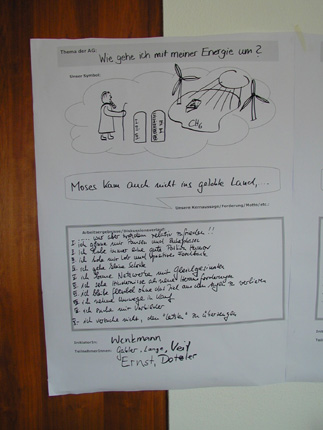 Thema der AG: Wie gehe ich mit meiner Energie um?
Unser Symbol:
CH6
Moses kam auch nicht ins gelobte Land,...
Unsere Kernaussage/Forderung/Motto/etc.:
Arbeitsergebnisse/Diskussionsverlauf:
... wir aber trotzdem relativ zufrieden!!
ich gönne mir Pausen und Ruhephasen
ich habe immer eine gute Portion Humor
ich hole mir Lob und positives Feedback
ich gehe kleine Schritte
ich suche Netzwerke mit Gleichgesinnten
ich sehe Hindernisse als neue Herausforderungen
ich bleibe flexibel ohne das Ziel aus den Augen zu verlieren
ich nehme Umwege in Kauf
ich suche mir Vorbilder
ich versuche nicht, den "letzten" zu überzeugen
Wenkmann
Gabler, Lange, Veit
Ernst,